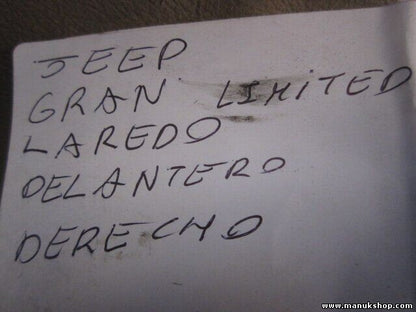 JEEP
GRAN LIMITED
LAREDO
DELANTERO
DERECHO
www.manukshop.com